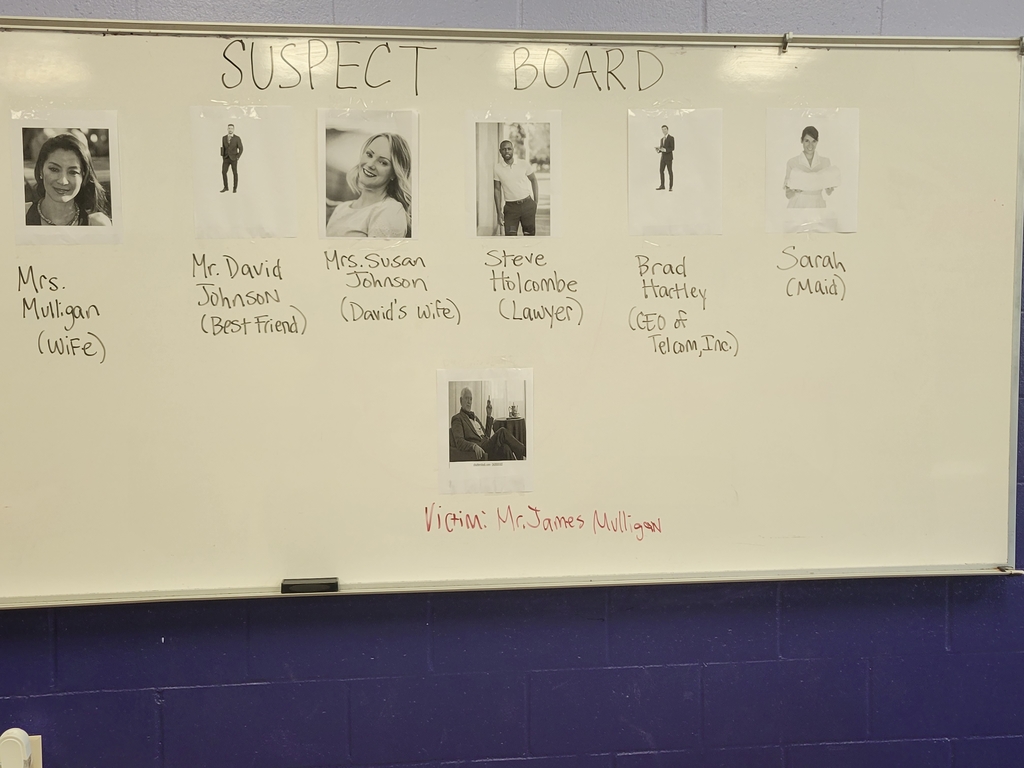 SUSPECT BOARD
Mrs.
Mulligan
(Wife)
Mr. David
Johnson
(Best Friend)
Mrs. Susan
Johnson
(David's Wife)
Steve
Holcombe
(Lawyer)
Brad
Hartley
(CEO of
Telcom, Inc.)
Sarah
(Maid)
Victim: Mr. James Mulligan